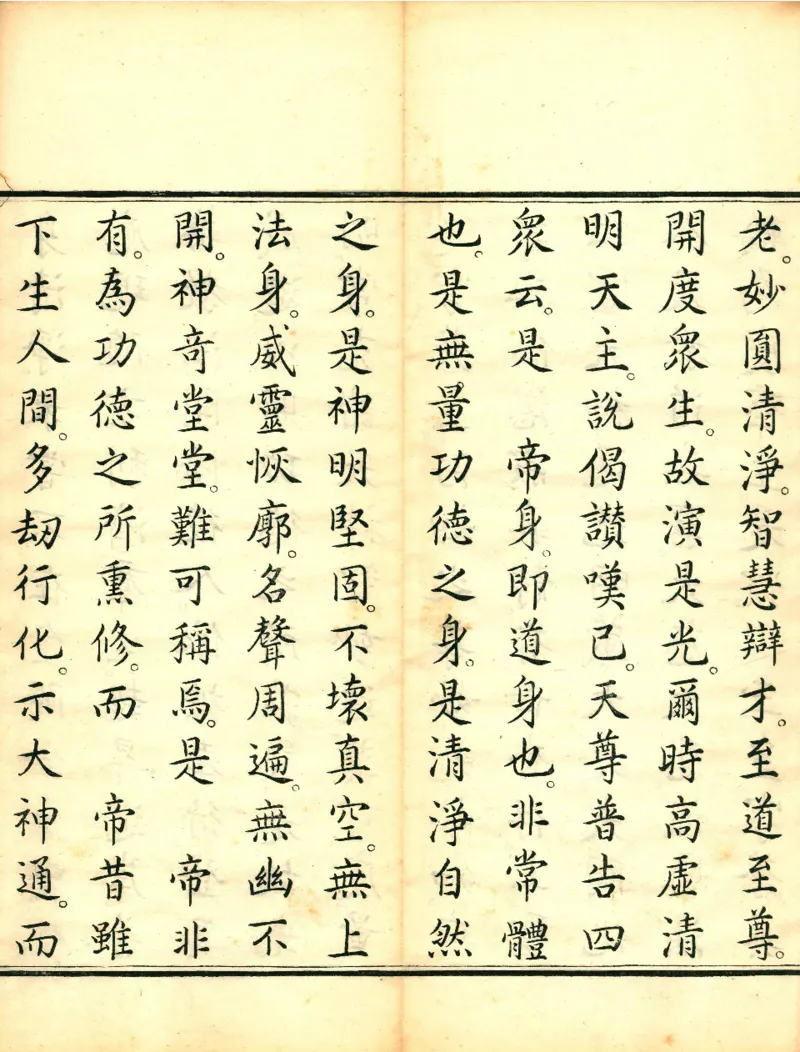 老。妙圓清淨。智慧辯才。至道至尊。
開度衆生。故演是光。爾時高虛清
明天主。說偈讃嘆已。天尊普告四
衆云。是　帝身。即道身也。非常體
也。是無量功德之身。是清淨自然
之身。是神明堅固。不壞真空。無上
法身。威靈恢廓。名聲周遍。無幽不
開。神奇堂堂。難可稱焉。是　帝非
有。為功德之所熏修。而　帝昔雖
下生人間。多劫行化。示大神通。而